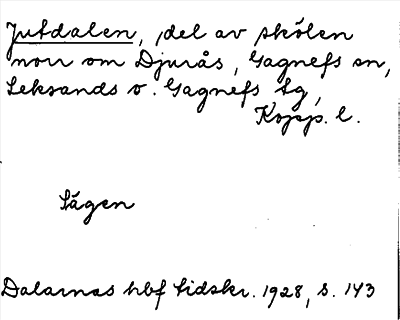 Jutdalen, del av skölen
norr om Djurås, Gagnefs sn,
Leksands o. Gagnefs tg,
Kopp. l.
Sägen
Dalarnas hbf tidskr. 1928, s. 143